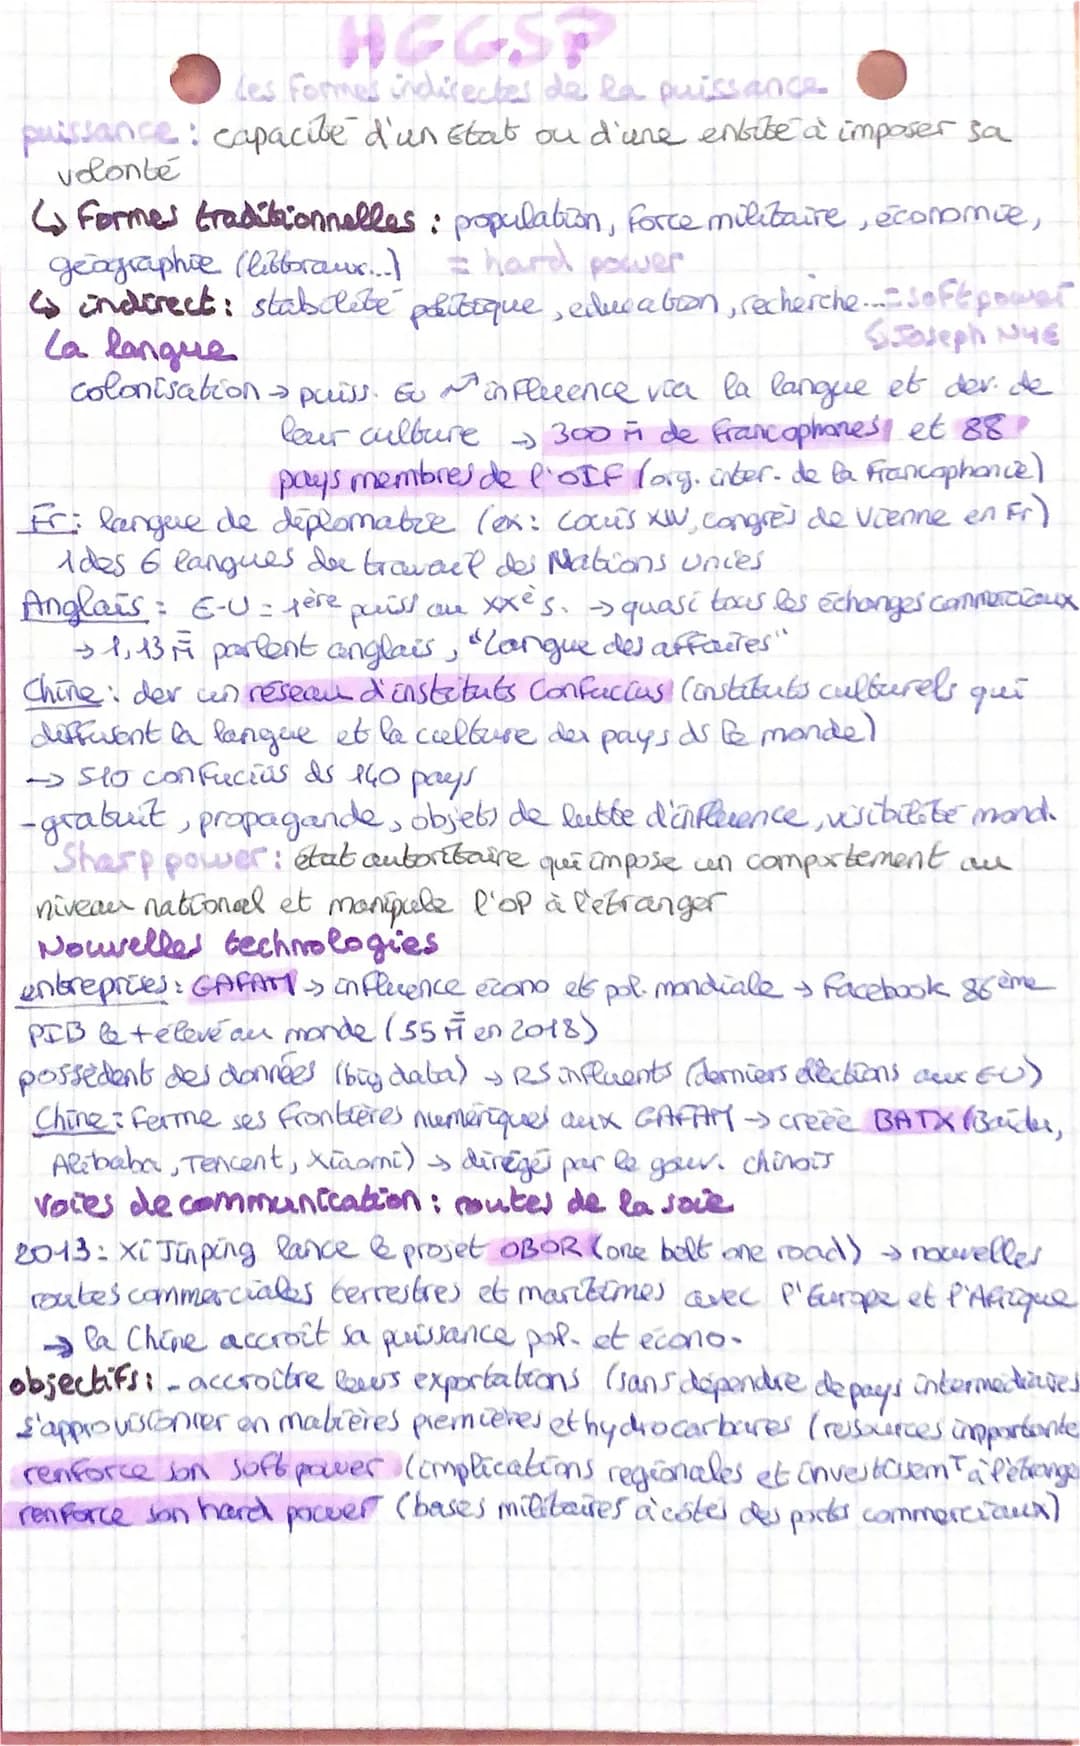 HGGSP
les formes indirectes de la puissance
puissance : capacité d'un Etat ou d'une entité à imposer sa
volonté
↳ Formes traditionnelles : population, force militaire, économie,
géographie (littoraux...) = hard power
↳ indirect : stabilité politique, éducation, recherche... = soft power
↳ Joseph NYE
La langue
colonisation → puiss. Eu ↗ influence via la langue et der. de
leur culture → 300 M de francophones et 88
pays membres de l'OIF (org. inter. de la Francophonie)
Fr : langue de diplomatie (ex : Louis XIV, congrès de Vienne en Fr)
1 des 6 langues de travail des Nations Unies
Anglais : E-U = 1ère puiss au XXè s. → quasi tous les échanges commerciaux
→ 1,13 M̄ parlent anglais, "langue des affaires"
Chine : der un réseau d'instituts Confucius (instituts culturels qui
diffusent la langue et la culture des pays ds le monde)
→ 510 confucius ds 140 pays
- gratuit, propagande, objets de lutte d'influence, visibilité mond.
Sharp power : état autoritaire qui impose un comportement au
niveau national et manipule l'op à l'étranger
Nouvelles technologies
entreprises : GAFAM → influence écono et pol. mondiale → Facebook 86ème
PIB le + élevé au monde (55 M̄ en 2018)
possèdent des données (big data) → RS influents (derniers élections aux EU)
Chine : ferme ses frontières numériques aux GAFAM → créée BATX (Baidu,
Alibaba, Tencent, Xiaomi) → dirigés par le gouv. chinois
Voies de communication : routes de la soie
2013 : Xi Jinping lance le projet OBOR (one belt one road) → nouvelles
routes commerciales terrestres et maritimes avec l'Europe et l'Afrique
→ la Chine accroît sa puissance pol. et écono.
objectifs : - accroître leurs exportations (sans dépendre de pays intermédiaires
s'approvisionner en matières premières et hydrocarbures (ressources importante
renforce son soft power (implications régionales et investissemT à l'étrange
renforce son hard power (bases militaires à côtés des ports commerciaux)